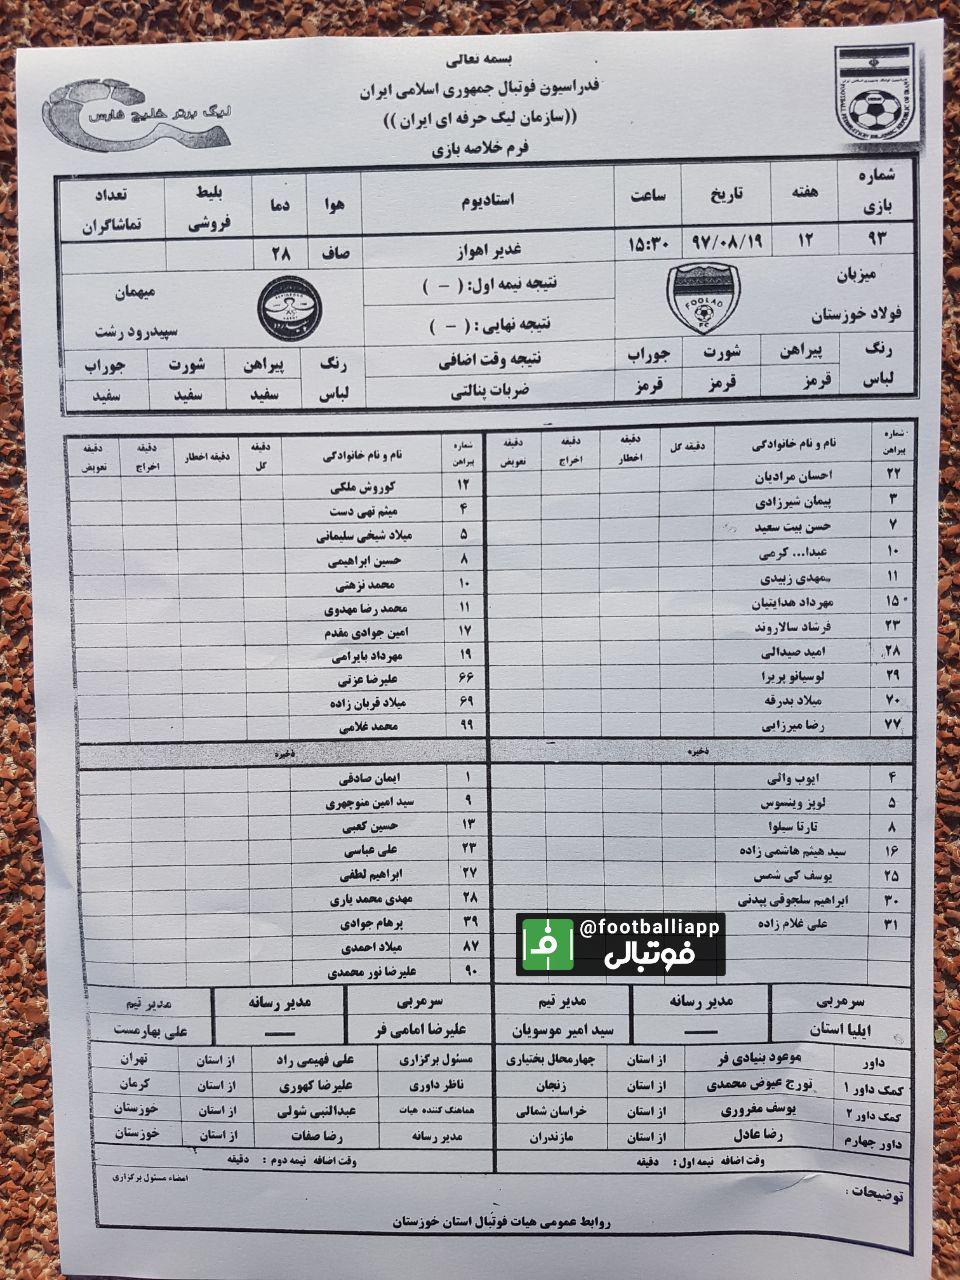 بسمه تعالی
فدراسیون فوتبال جمهوری اسلامی ایران
((سازمان لیگ حرفه ای ایران ))
فرم خلاصه بازی
لیگ برتر خلیج فارس
شماره بازی هفته تاریخ ساعت استادیوم هوا دما بلیط فروشی تعداد تماشاگران
۹۳ ۱۲ ۹۷/۰۸/۱۹ ۱۵:۳۰ غدیر اهواز صاف ۲۸
میزبان
فولاد خوزستان
FOOLAD
FC
نتیجه نیمه اول: ( - )
نتیجه نهایی : ( - )
میهمان
سپیدرود رشت
رنگ لباس پیراهن شورت جوراب نتیجه وقت اضافی رنگ لباس پیراهن شورت جوراب
قرمز قرمز قرمز ضربات پنالتی سفید سفید سفید
شماره پیراهن نام و نام خانوادگی دقیقه گل دقیقه اخطار دقیقه اخراج دقیقه تعویض
۲۲ احسان مرادیان
۳ پیمان شیرزادی
۷ حسن بیت سعید
۱۰ عبدا... کرمی
۱۱ مهدی زبیدی
۱۵ مهرداد هدایتیان
۲۳ فرشاد سالاروند
۲۸ امید صیدالی
۲۹ لوسیانو پریرا
۷۰ میلاد بدرقه
۷۷ رضا میرزایی
ذخیره
۴ ایوب والی
۵ لوپز وینسوس
۸ تارتا سیلوا
۱۶ سید هیثم هاشمی زاده
۲۵ یوسف کی شمس
۳۰ ابراهیم سلجوقی پیدنی
۳۱ علی غلام زاده
شماره پیراهن نام و نام خانوادگی دقیقه گل دقیقه اخطار دقیقه اخراج دقیقه تعویض
۱۲ کوروش ملکی
۴ میثم تهی دست
۵ میلاد شیخی سلیمانی
۸ حسین ابراهیمی
۱۰ محمد نزهتی
۱۱ محمد رضا مهدوی
۱۷ امین جوادی مقدم
۱۹ مهرداد بایرامی
۶۶ علیرضا عزتی
۶۹ میلاد قربان زاده
۹۹ محمد غلامی
ذخیره
۱ ایمان صادقی
۹ سید امین منوچهری
۱۳ حسین کعبی
۲۳ علی عباسی
۲۷ ابراهیم لطفی
۲۸ مهدی محمد یاری
۳۹ پرهام جوادی
۸۷ میلاد احمدی
۹۰ علیرضا نور محمدی
@footballiapp
فوتبالی
سرمربی مدیر رسانه مدیر تیم سرمربی مدیر رسانه مدیر تیم
ایلیا استان — سید امیر موسویان علیرضا امامی فر — علی بهارمست
داور موعود بنیادی فر از استان چهارمحال بختیاری مسئول برگزاری علی فهیمی راد از استان تهران
کمک داور ۱ تورج عیوض محمدی از استان زنجان ناظر داوری علیرضا کهوری از استان کرمان
کمک داور ۲ یوسف مغروری از استان خراسان شمالی هماهنگ کننده هیات عبدالنبی شولی از استان خوزستان
داور چهارم رضا عادل از استان مازندران مدیر رسانه رضا صفات از استان خوزستان
وقت اضافه نیمه اول : دقیقه وقت اضافه نیمه دوم : دقیقه
توضیحات : امضاء مسئول برگزاری
روابط عمومی هیات فوتبال استان خوزستان